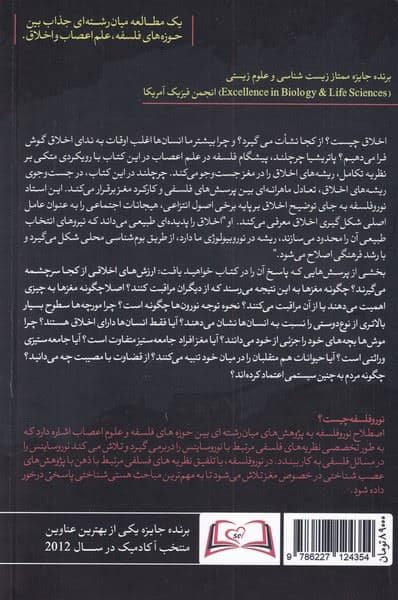 یک مطالعه میان‌رشته‌ای جذاب بین
حوزه‌های فلسفه، علم اعصاب و اخلاق.
برنده جایزه ممتاز زیست شناسی و علوم زیستی
(Excellence in Biology & Life Sciences) انجمن فیزیک آمریکا
اخلاق چیست؟ از کجا نشأت می‌گیرد؟ و چرا بیشتر ما انسان‌ها اغلب اوقات به ندای اخلاق گوش
فرا می‌دهیم؟ پاتریشیا چرچلند، پیشگام فلسفه در علم اعصاب در این کتاب با رویکردی متکی بر
نظریه تکامل، ریشه‌های اخلاق را در مغز جست‌وجو می‌کند. چرچلند در این کتاب، در جست‌وجوی
ریشه‌های اخلاق، تعادل ماهرانه‌ای بین پرسش‌های فلسفی و کارکرد مغز برقرار می‌کند. این استاد
نوروفلسفه به جای توضیح اخلاق بر پایه برخی اصول انتزاعی، هیجانات اجتماعی را به عنوان عامل
اصلی شکل‌گیری اخلاق معرفی می‌کند. او "اخلاق را پدیده‌ای طبیعی می‌داند که نیروهای انتخاب
طبیعی آن را محدود می‌سازند، ریشه در نوروبیولوژی ما دارد، از طریق بوم‌شناسی محلی شکل می‌گیرد و
با رشد فرهنگی اصلاح می‌شود."
بخشی از پرسش‌هایی که پاسخ آن را در کتاب خواهید یافت: ارزش‌های اخلاقی از کجا سرچشمه
می‌گیرند؟ چگونه مغزها به این نتیجه می‌رسند که از دیگران مراقبت کنند؟ اصلا چگونه مغزها به چیزی
اهمیت می‌دهند یا از آن مراقبت می‌کنند؟ نحوه توجه نورون‌ها چگونه است؟ چرا مورچه‌ها سطوح بسیار
بالاتری از نوع‌دوستی را نسبت به انسان‌ها نشان می‌دهند؟ آیا فقط انسان‌ها دارای اخلاق هستند؟ چرا
موش‌ها بچه‌های خود را جزئی از خود می‌دانند؟ آیا مغز افراد جامعه‌ستیز متفاوت است؟ آیا جامعه‌ستیزی
وراثتی است؟ آیا حیوانات هم متقلبان را در میان خود تنبیه می‌کنند؟ از قضاوت با مصیبت چه می‌دانید؟
چگونه مردم به چنین سیستمی اعتماد کرده‌اند؟
نوروفلسفه چیست؟
اصطلاح نوروفلسفه به پژوهش‌های میان‌رشته ای بین حوزه های فلسفه و علوم اعصاب اشاره دارد که
به طور تخصصی نظریه های فلسفی مرتبط با نوروساینس را دربر می گیرد و تلاش می کند نوروساینس را
در مسائل فلسفی به کار ببندد. در نوروفلسفه، با تلفیق نظریه های فلسفی مرتبط با ذهن با پژوهش‌های
عصب شناختی در خصوص مغز تلاش می‌شود تا به مهم‌ترین مباحث هستی‌شناختی پاسخی درخور
داده شود.
برنده جایزه یکی از بهترین عناوین
منتخب آکادمیک در سال 2012
sci
9 786227 124354
۸۹۰۰۰ تومان